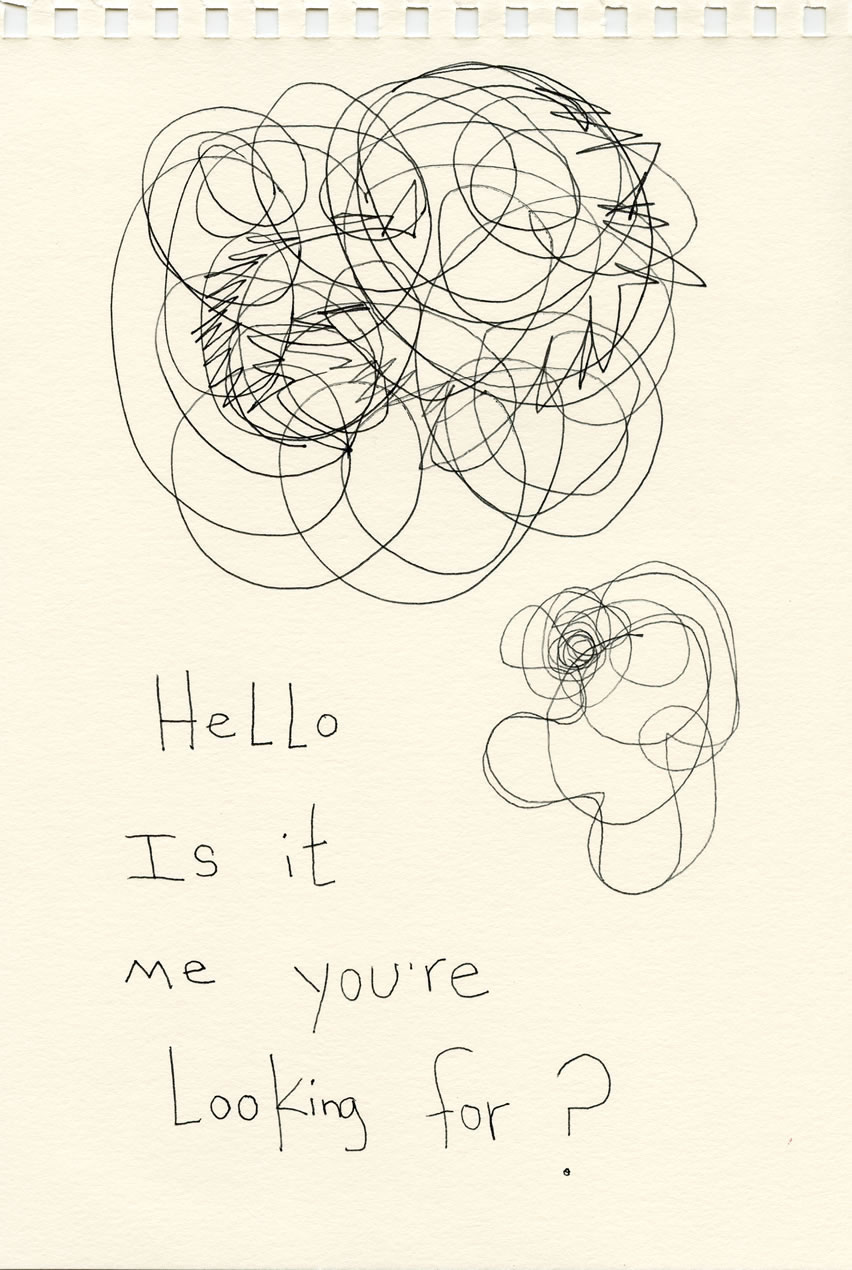 HeLLo
Is it
me you're
Looking for ?